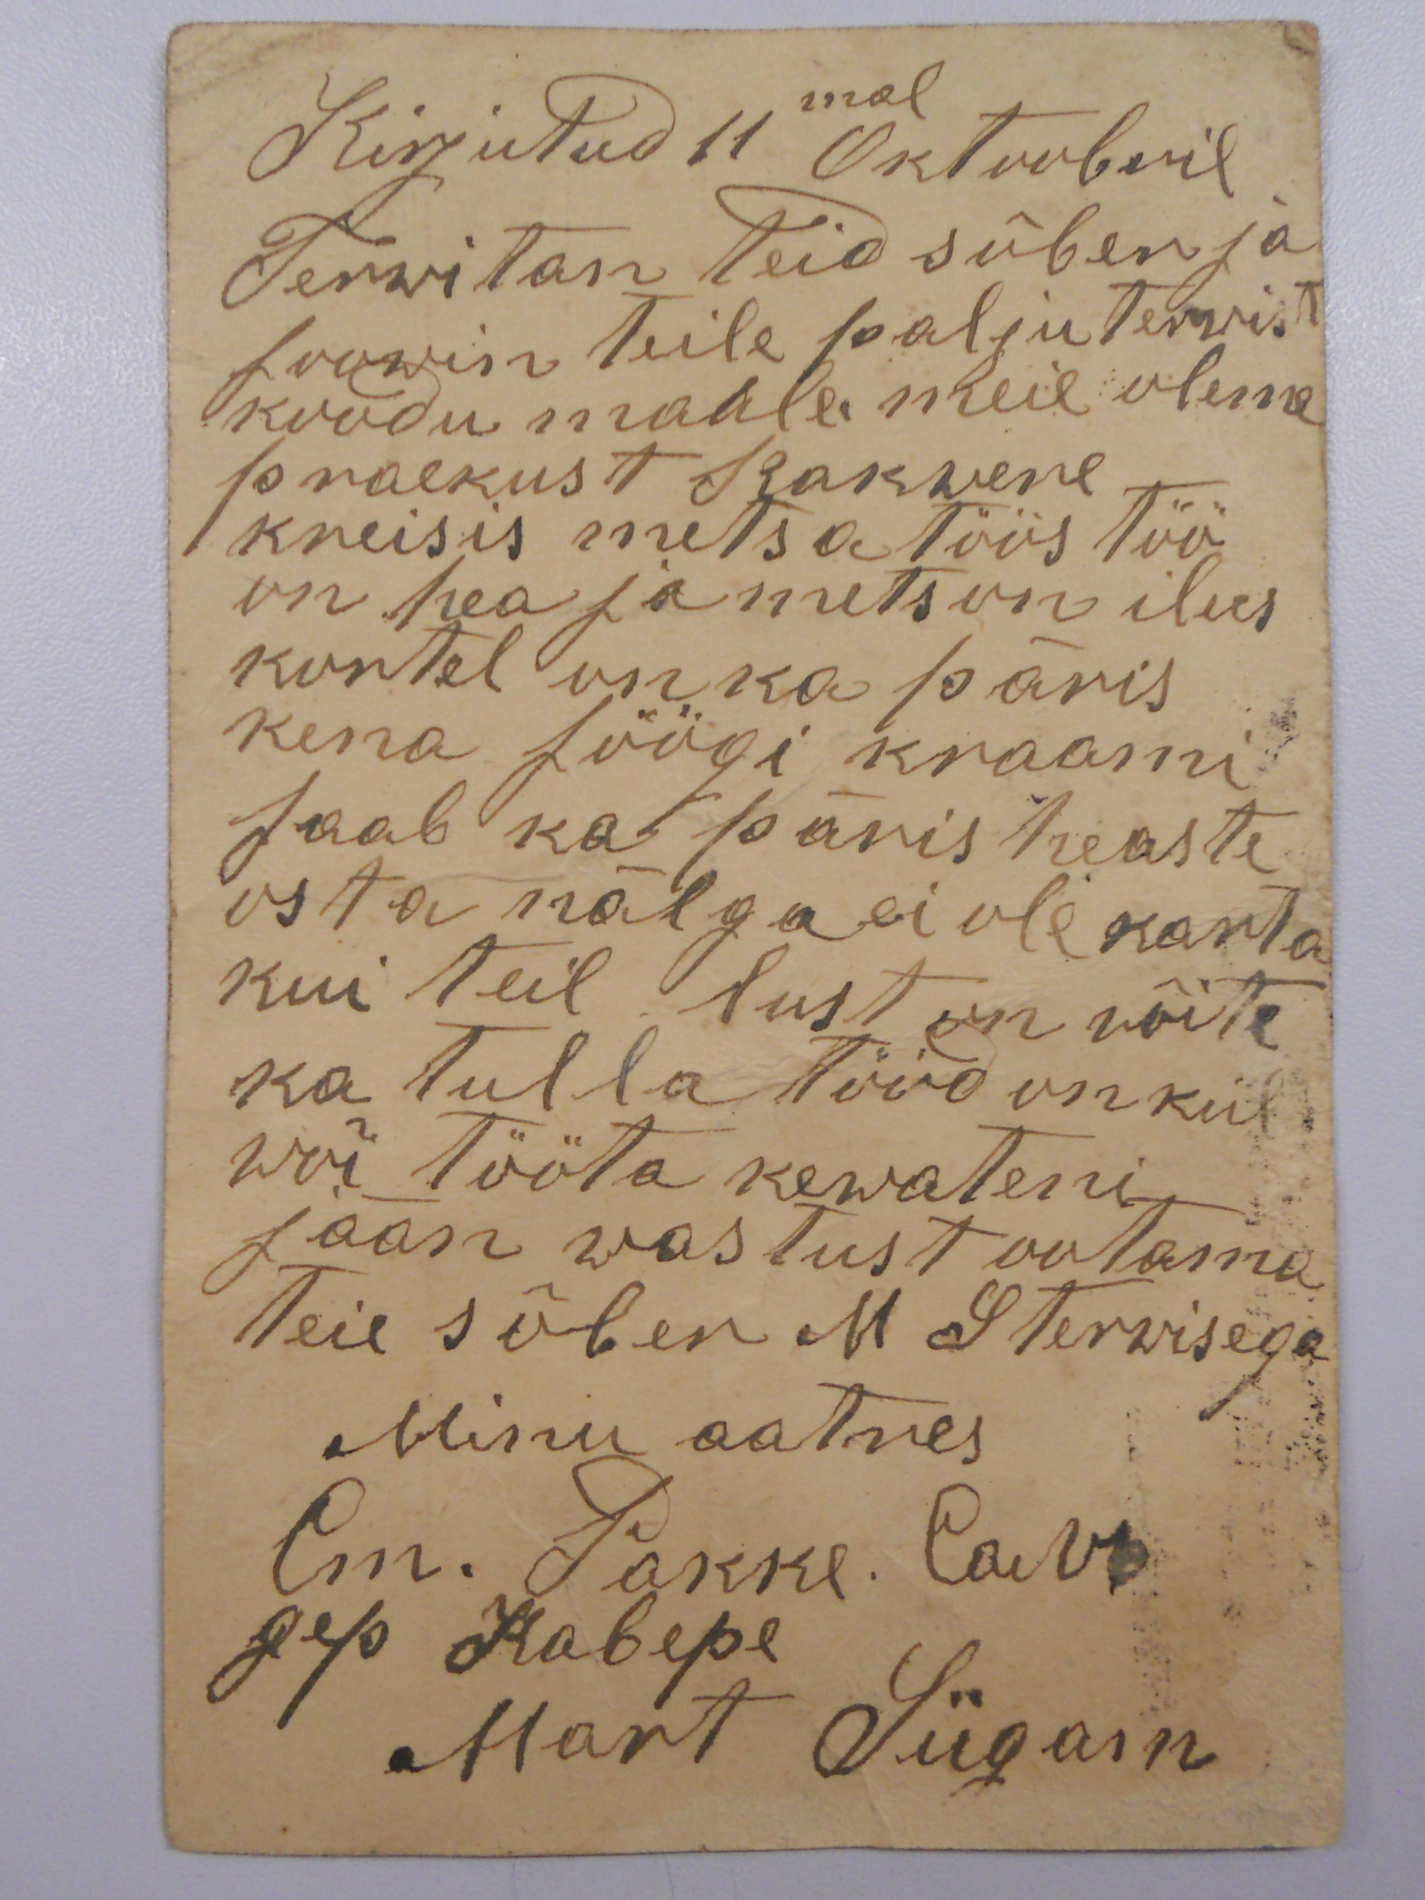 Kirjutud 11 mal Oktoobril
Terwitan Teid sõber ja
soowin teile palju terwist
koodu maale. meie oleme
praekust Rakwere
kreisis metsa töös töö
on hea ja mets on ilus
kortel on ka päris
kena söögi kraami
saab ka päris heaste
osta nälga ei ole karta
kui teil lust on wõite
ka tulla tööd on kül
wõi tööta kewateni
jään wastust ootama
teie sõber M S terwisega
Minu aatres
Cm. Takke.
gep Kabepe
Mart Sügam